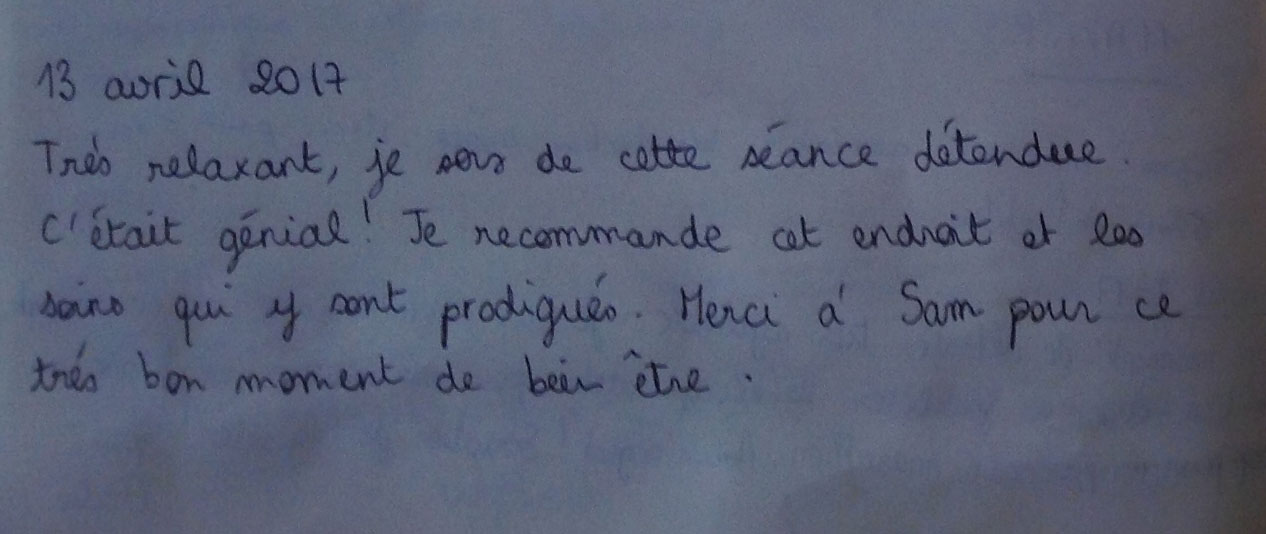 13 avril 2017
Trés relaxant, je sors de cette séance détendue.
C'était génial! Je recommande cet endroit et les
soins qui y sont prodigués. Merci á Sam pour ce
trés bon moment de bein être.